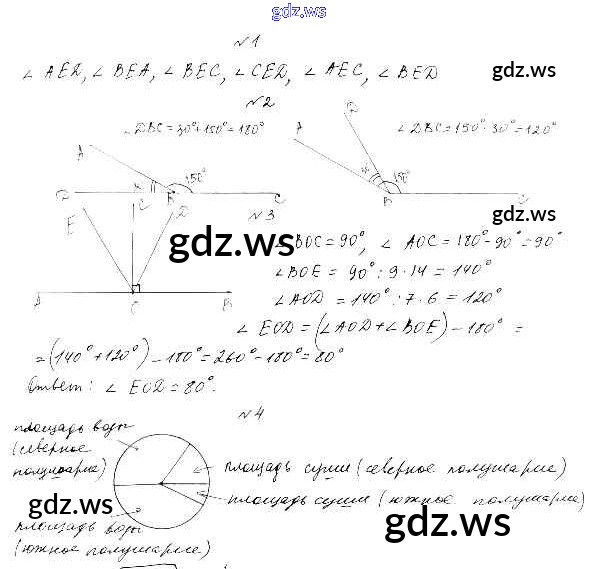 gdz.ws
№1
∠ AED, ∠ BEA, ∠ BEC, ∠ CED, ∠ AEC, ∠ BED
gdz.ws
№2
∠ DBC = 30° + 150° = 180°
A
150°
D B C
D
A
∠ DBC = 150° - 30° = 120°
150°
B C
gdz.ws
№3
E C D
A O B
gdz.ws
∠ BOC = 90°, ∠ AOC = 180° - 90° = 90°
∠ BOE = 90° : 9 · 14 = 140°
∠ AOD = 140° : 7 · 6 = 120°
∠ EOD = (∠ AOD + ∠ BOE) - 180° =
= (140° + 120°) - 180° = 260° - 180° = 80°
Ответ: ∠ EOD = 80°.
№4
площадь воды
(северное
полушарие)
площадь суши (северное полушарие)
площадь суши (южное полушарие)
gdz.ws
gdz.ws
площадь воды
(южное полушарие)